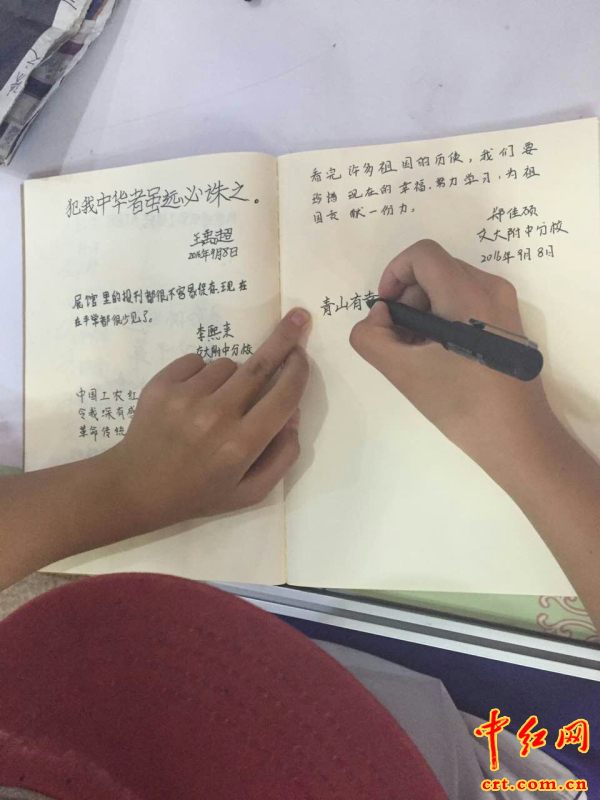 犯我中华者虽远必诛之。
王禹超
2016年9月8日
展馆里的报刊都很不容易保存,现在
在平常都很少见了。
李熙来
方大附中分校
中国工农红
令我深有感
革命传统
看完许多祖国的历史,我们要
珍惜现在的幸福,努力学习,为祖
国贡献一份力。
郑佳硕
文大附中分校
2016年9月8日
青山有幸
中红网
crt.com.cn